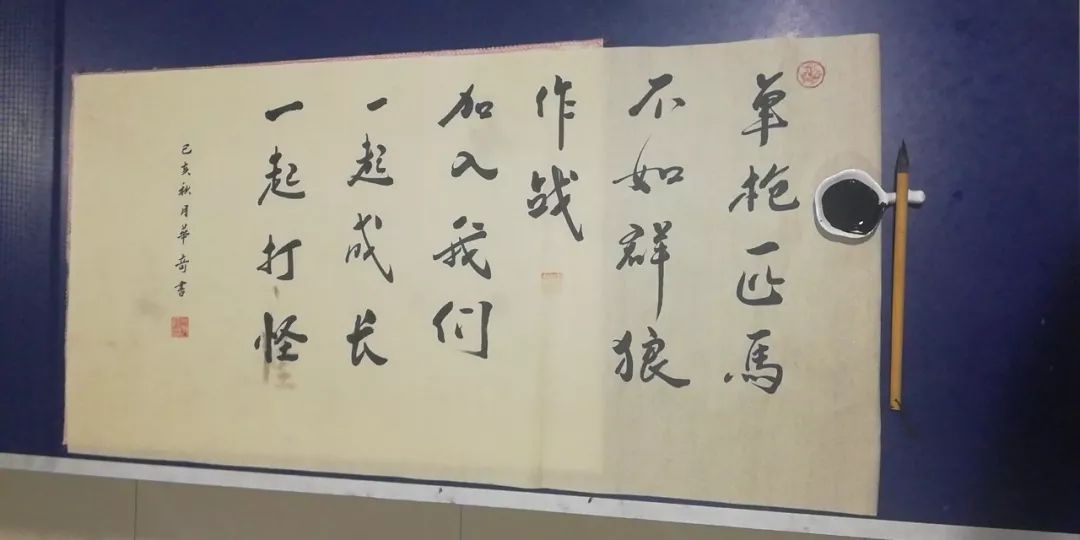 单枪一匹馬
不如群狼
作战
加入我们
一起成长
一起打怪
己亥秋月華奇書